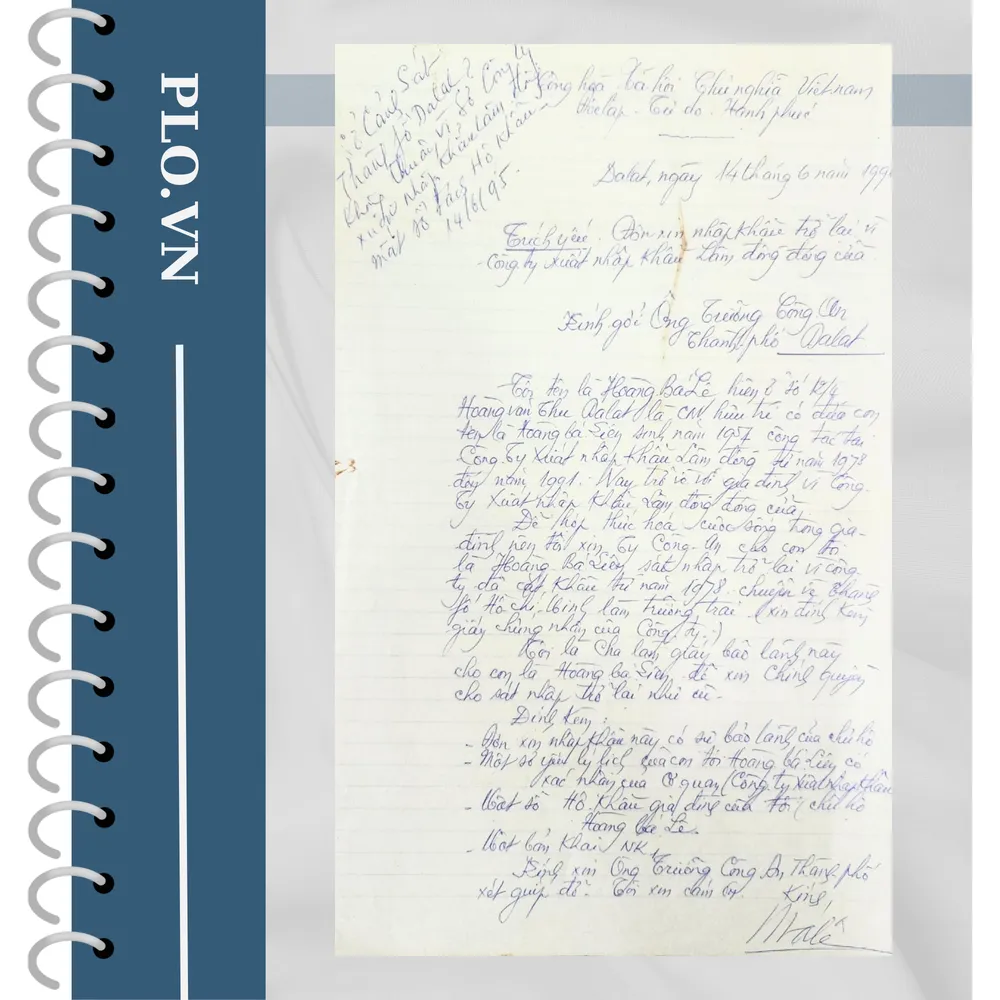 PLO.VN
Sở Cảnh Sát
Thành fố Dalat
không thuận vì Sở Công ty
xuất nhập Khẩu Lâm Đồng
mất sổ tách Hộ Khẩu
14/6/95.
Cộng hòa Xã hội Chủ nghĩa Việt nam
Độc lập - Tự do - Hạnh phúc
Dalat, ngày 14 tháng 6 năm 199
Trích yếu. Đơn xin nhập khẩu trở lại vì
Công ty xuất nhập khẩu Lâm đồng đóng cửa
Kính gởi Ông Trưởng Công An
Thành phố Dalat
Tôi tên là Hoàng Bá Lê hiện ở số 12/4
Hoàng văn Thụ Dalat là CM hưu trí có đứa con
tên là Hoàng bá Liên sinh năm 1957 công tác tại
Công Ty Xuất nhập khẩu Lâm đồng từ năm 1978
đến năm 1991. Nay trở về với gia đình vì Công
Ty Xuất nhập khẩu Lâm đồng đóng cửa.
Để hợp thức hoá cuộc sống trong gia
đình nên tôi xin Ty Công-An cho con tôi
là Hoàng Bá Liên sát nhập trở lại vì công
ty đã cắt khẩu từ năm 1978. chuyển về Thành
fố Hồ chí Minh làm trưởng trại (xin đính kèm
giấy chứng nhận của Công ty.)
Tôi là cha làm giấy bảo lãnh này
cho con là Hoàng bá Liên để xin chính quyền
cho sát nhập trở lại như cũ.
Đính kèm:
- Đơn xin nhập khẩu này có sự bảo lãnh của chủ hộ
- Một sơ yếu lý lịch của con tôi Hoàng bá Liên có
xác nhận của cơ quan (Công ty xuất nhập khẩu
- Một sổ Hộ Khẩu gia đình của tôi chủ hộ
Hoàng bá Lê.
- Một bản khai NK,
Kính xin Ông Trưởng Công An Thành phố
xét giúp đỡ. Tôi xin cám ơn.
Kính,